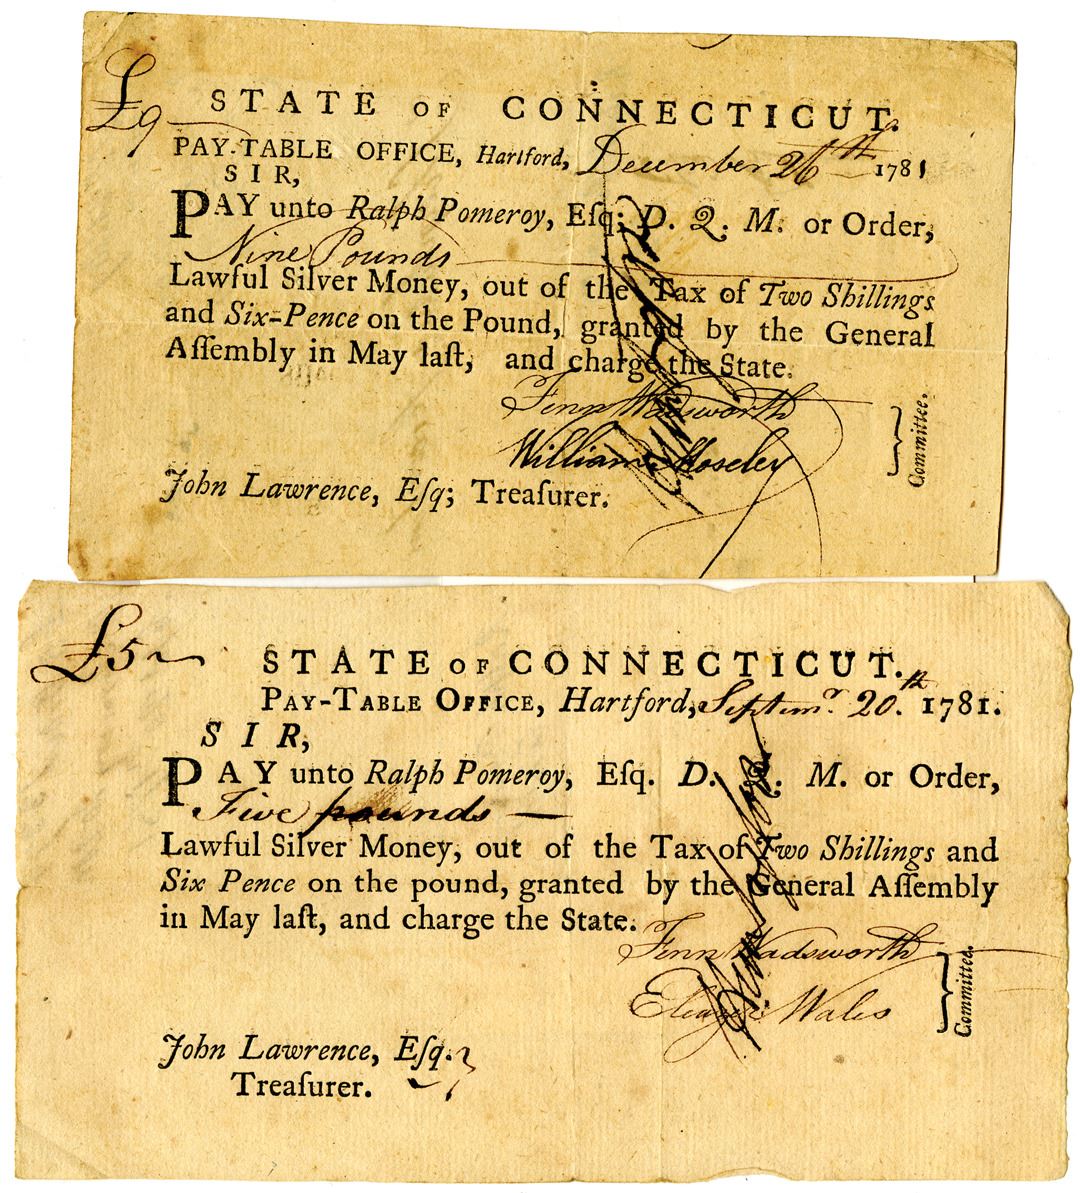 £9
STATE OF CONNECTICUT.
PAY-TABLE OFFICE, Hartford, December 26th 1781
SIR,
PAY unto Ralph Pomeroy, Eſq; D. Q. M. or Order,
Nine Pounds
Lawful Silver Money, out of the Tax of Two Shillings
and Six-Pence on the Pound, granted by the General
Aſſembly in May laſt, and charge the State.
Fenn Wadsworth
William Moseley
Committee.
John Lawrence, Eſq; Treaſurer.
£5
STATE OF CONNECTICUT.
PAY-TABLE OFFICE, Hartford, Septemr. 20.th 1781.
SIR,
PAY unto Ralph Pomeroy, Eſq. D. Q. M. or Order,
Five pounds —
Lawful Silver Money, out of the Tax of Two Shillings and
Six Pence on the pound, granted by the General Aſſembly
in May laſt, and charge the State.
Fenn Wadsworth
Eleazer Wales
Committee.
John Lawrence, Eſq.
Treaſurer.